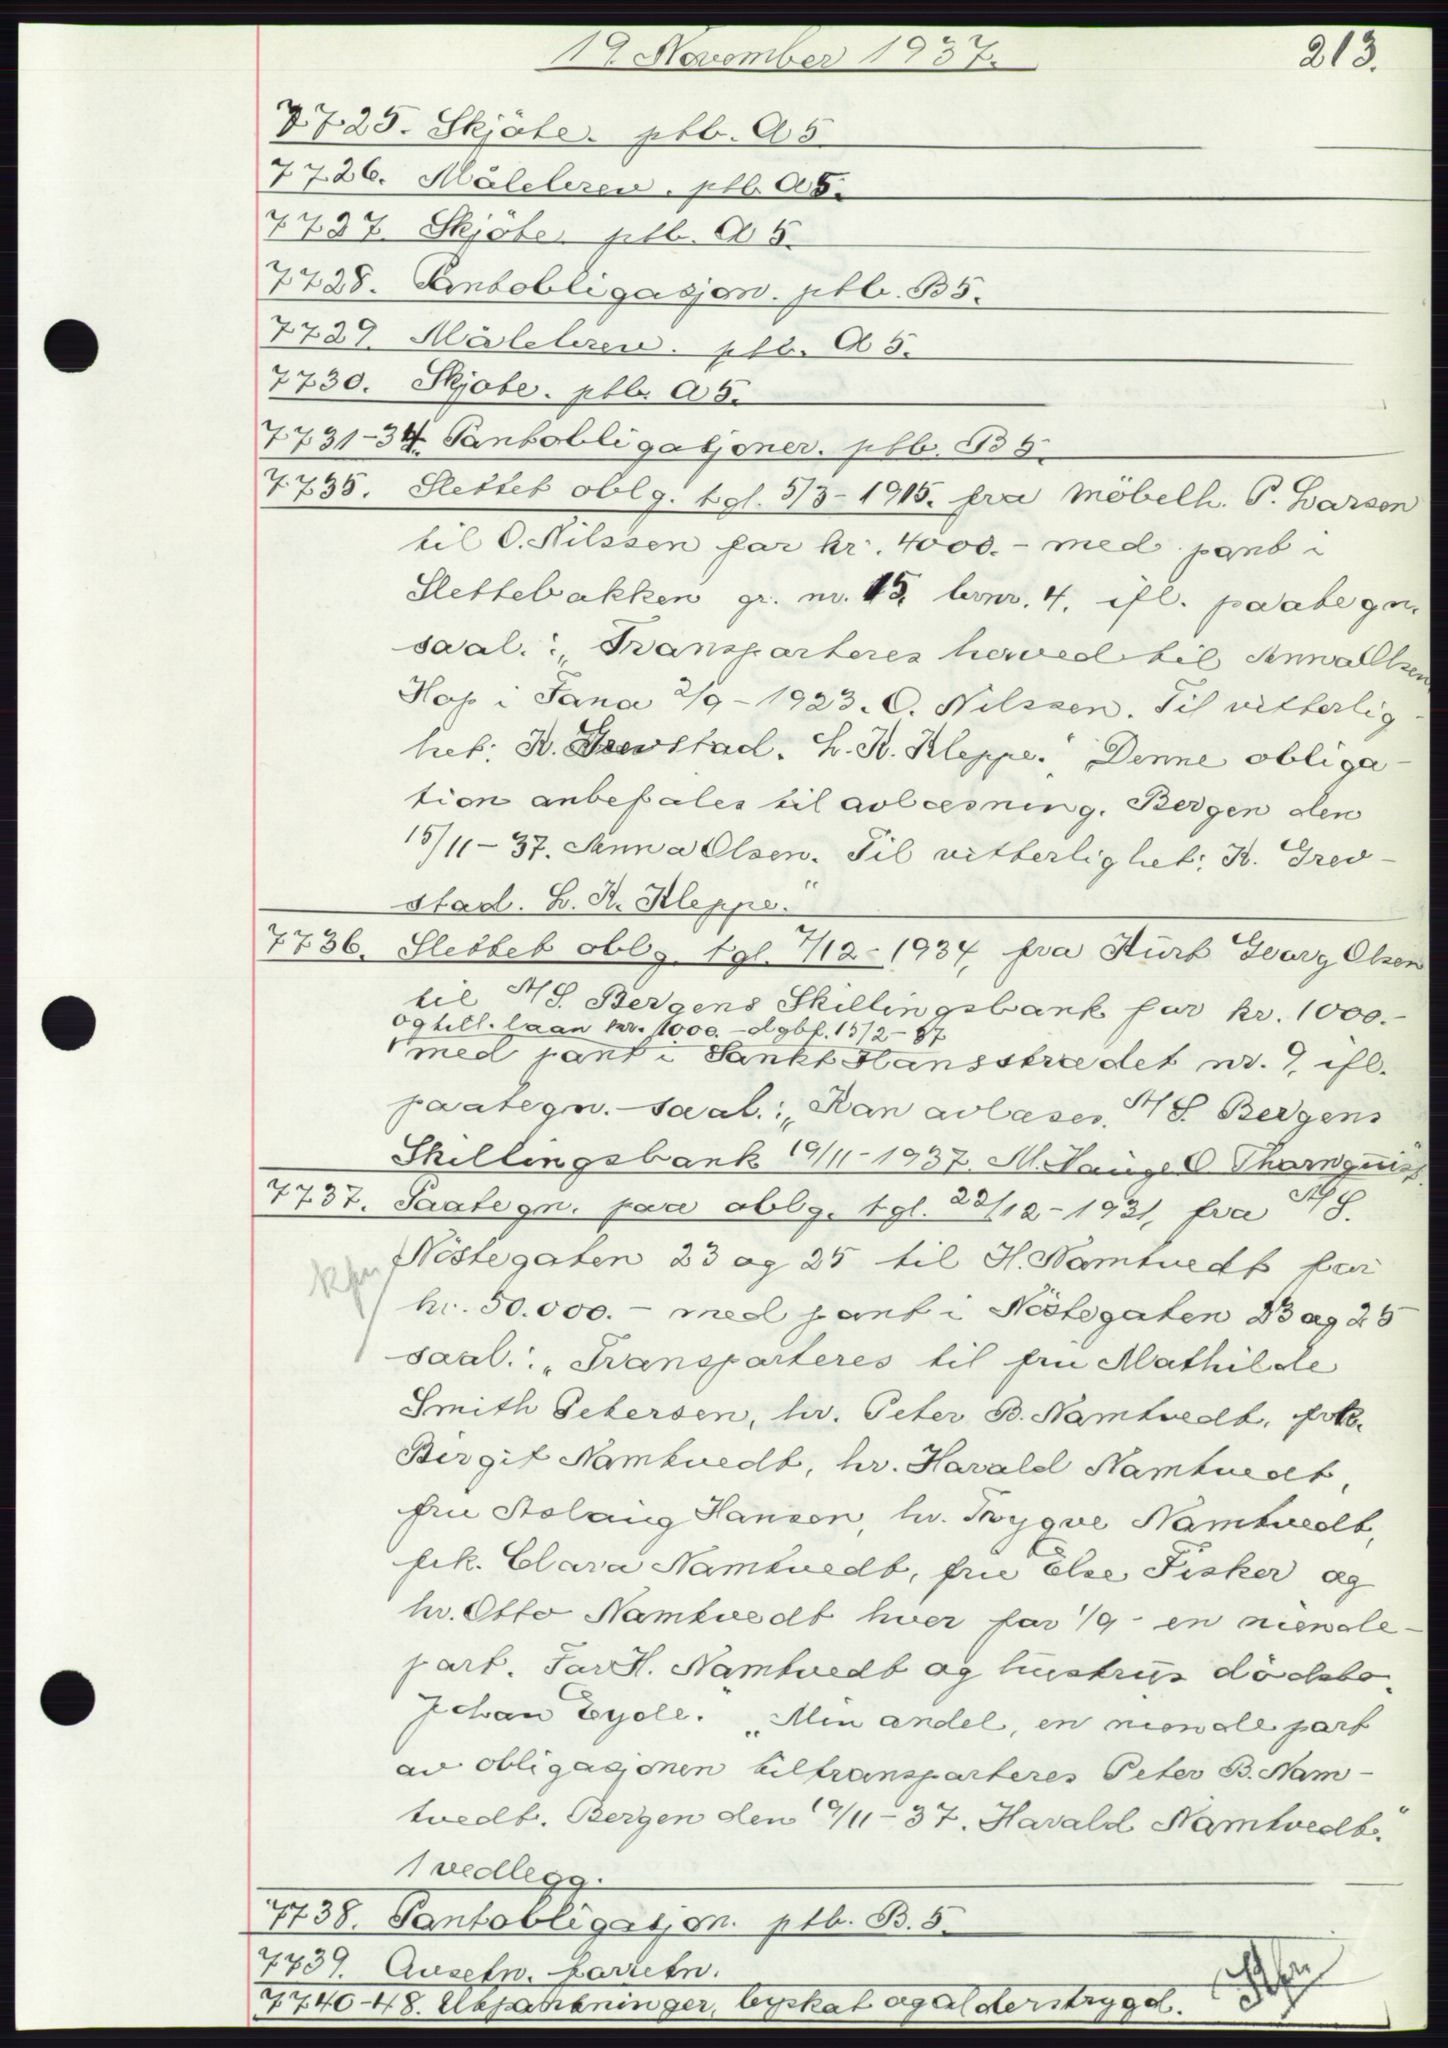 19. November 1937.
213.
7725. Skjöte. ptb. A 5.
7726. Målebrev. ptb. A 5.
7727. Skjöte. ptb. A 5.
7728. Pantobligasjon. ptb. B 5.
7729. Målebrev. ptb. A 5.
7730. Skjøte. ptb. A 5.
7731-34. Pantobligasjoner. ptb. B 5.
7735. Slettet oblg. tgl. 5/3-1915. fra Möbelh. P. Larsen
til O. Nilssen for kr. 4000.- med pant i
Slettebakken gr. nr. 15. brnr. 4. ifl. paategn.
saal.: „Transporteres herved til Anna Olsen
Hop i Fana 2/9-1923. O. Nilssen. Til vitterlig-
het: K. Grevstad. L. K. Kleppe." „Denne obliga-
tion anbefales til avlæsning. Bergen den
15/11-37. Anna Olsen. Til vitterlighet: K. Grev-
stad. L. K. Kleppe."
7736. Slettet oblg. tgl. 7/12-1934, fra Kurt Georg Olsen
til A/S. Bergens Skillingsbank for kr. 1000.-
og till. laan kr. 1000.- dgbf. 15/2-37
med pant i Sankt Hansstrædet nr. 9, ifl.
paategn. saal.: „Kan avlæses. A/S. Bergens
Skillingsbank 19/11-1937. M. Hauge O Thornquist.
7737. Paategn. paa oblg. tgl. 22/12-1931, fra A/S.
Nöstegaten 23 og 25 til H. Namtvedt for
kr. 50.000.- med pant i Nöstegaten 23 og 25
saal.: „Transporteres til fru Mathilde
Smith Petersen, hr. Peter B. Namtvedt, frk.
Birgit Namtvedt, hr. Harald Namtvedt,
fru Aslaug Hansen, hr. Trygve Namtvedt,
frk. Clara Namtvedt, fru Else Fisker og
hr. Otto Namtvedt hver for 1/9 - en niende-
part. For H. Namtvedt og hustrus dödsbo.
Johan Eyde." „Min andel, en niendepart
av obligasjonen tiltransporteres Peter B. Nam-
tvedt. Bergen den 19/11-37. Harald Namtvedt."
1 vedlegg.
7738. Pantobligasjon. ptb. B. 5.
7739. Avsetn. forretn.
7740-48. Utpantninger, byskat og alderstrygd.